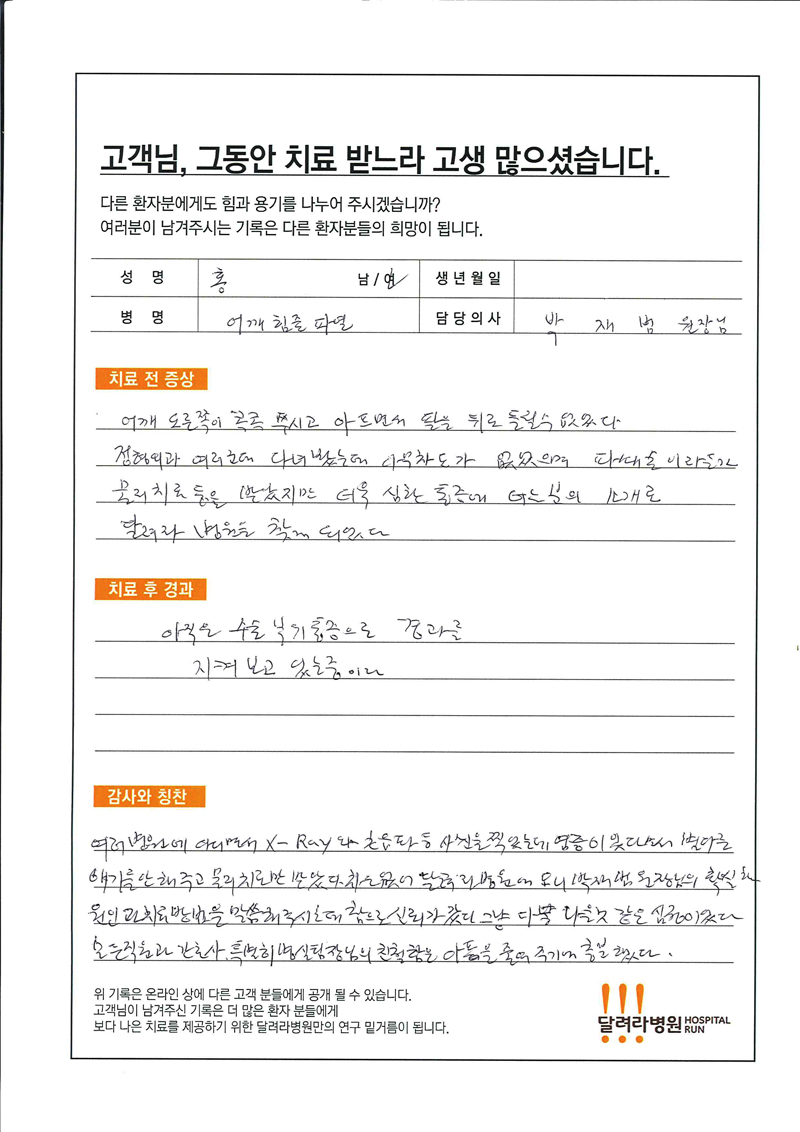 고객님, 그동안 치료 받느라 고생 많으셨습니다.
다른 환자분에게도 힘과 용기를 나누어 주시겠습니까?
여러분이 남겨주시는 기록은 다른 환자분들의 희망이 됩니다.
성 명 홍 남 / 여 생년월일
병 명 어깨 힘줄 파열 담당의사 박 재 범 원장님
치료 전 증상
어깨 오른쪽이 콕콕 쑤시고 아프면서 팔을 뒤로 돌릴수 없었다
정형외과 여러군데 다녀봤는데 아무차도가 없었으며
물리치료 등을 받았지만 더욱 심한 통증에 소개로
달려라 병원을 찾게 되었다
치료 후 경과
아직은 수술 부위 통증으로 경과를
지켜 보고 있는중이다
감사와 칭찬
여러 병원에 다니면서 X-Ray 와 초음파 등 사진을 찍었는데 염증이 있다면서 별다른
얘기를 안해주고 물리치료만 받았다. 달려라병원에 오니 박재범 원장님의 확실한
원인과 치료방법을 말씀해주시는데 참으로 신뢰가 갔다 그냥 다 나을것 같은 심정이었다
모든직원과 간호사, 특별히 병실팀장님의 친절함은 아픔을 줄여 주기에 충분했다.
위 기록은 온라인 상에 다른 고객 분들에게 공개 될 수 있습니다.
고객님이 남겨주신 기록은 더 많은 환자 분들에게
보다 나은 치료를 제공하기 위한 달려라병원만의 연구 밑거름이 됩니다.
!!!
달려라병원 HOSPITAL RUN